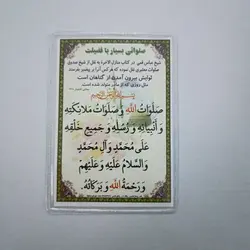 صلواتی بسیار با فضیلت
شیخ عباس قمی در کتاب منازل الآخره به نقل از شیخ صدوق
صلوات معتبری نقل نموده که هر کس آنرا بر پیغمبر بفرستد
ثوابش بیرون آمدن از گناهان است
مثل روزی که از مادر متولد شده است
صَلَوَاتُ اللهِ وَ صَلَوَاتُ مَلائِکَتِهِ
وَ أَنْبِیَائِهِ وَ رُسُلِهِ وَ جَمِیعِ خَلْقِهِ
عَلَی مُحَمَّدٍ وَ آلِ مُحَمَّدٍ
وَ السَّلامُ عَلَیْهِ وَ عَلَیْهِم
وَ رَحْمَةُ اللهِ وَ بَرَکَاتُهُ.